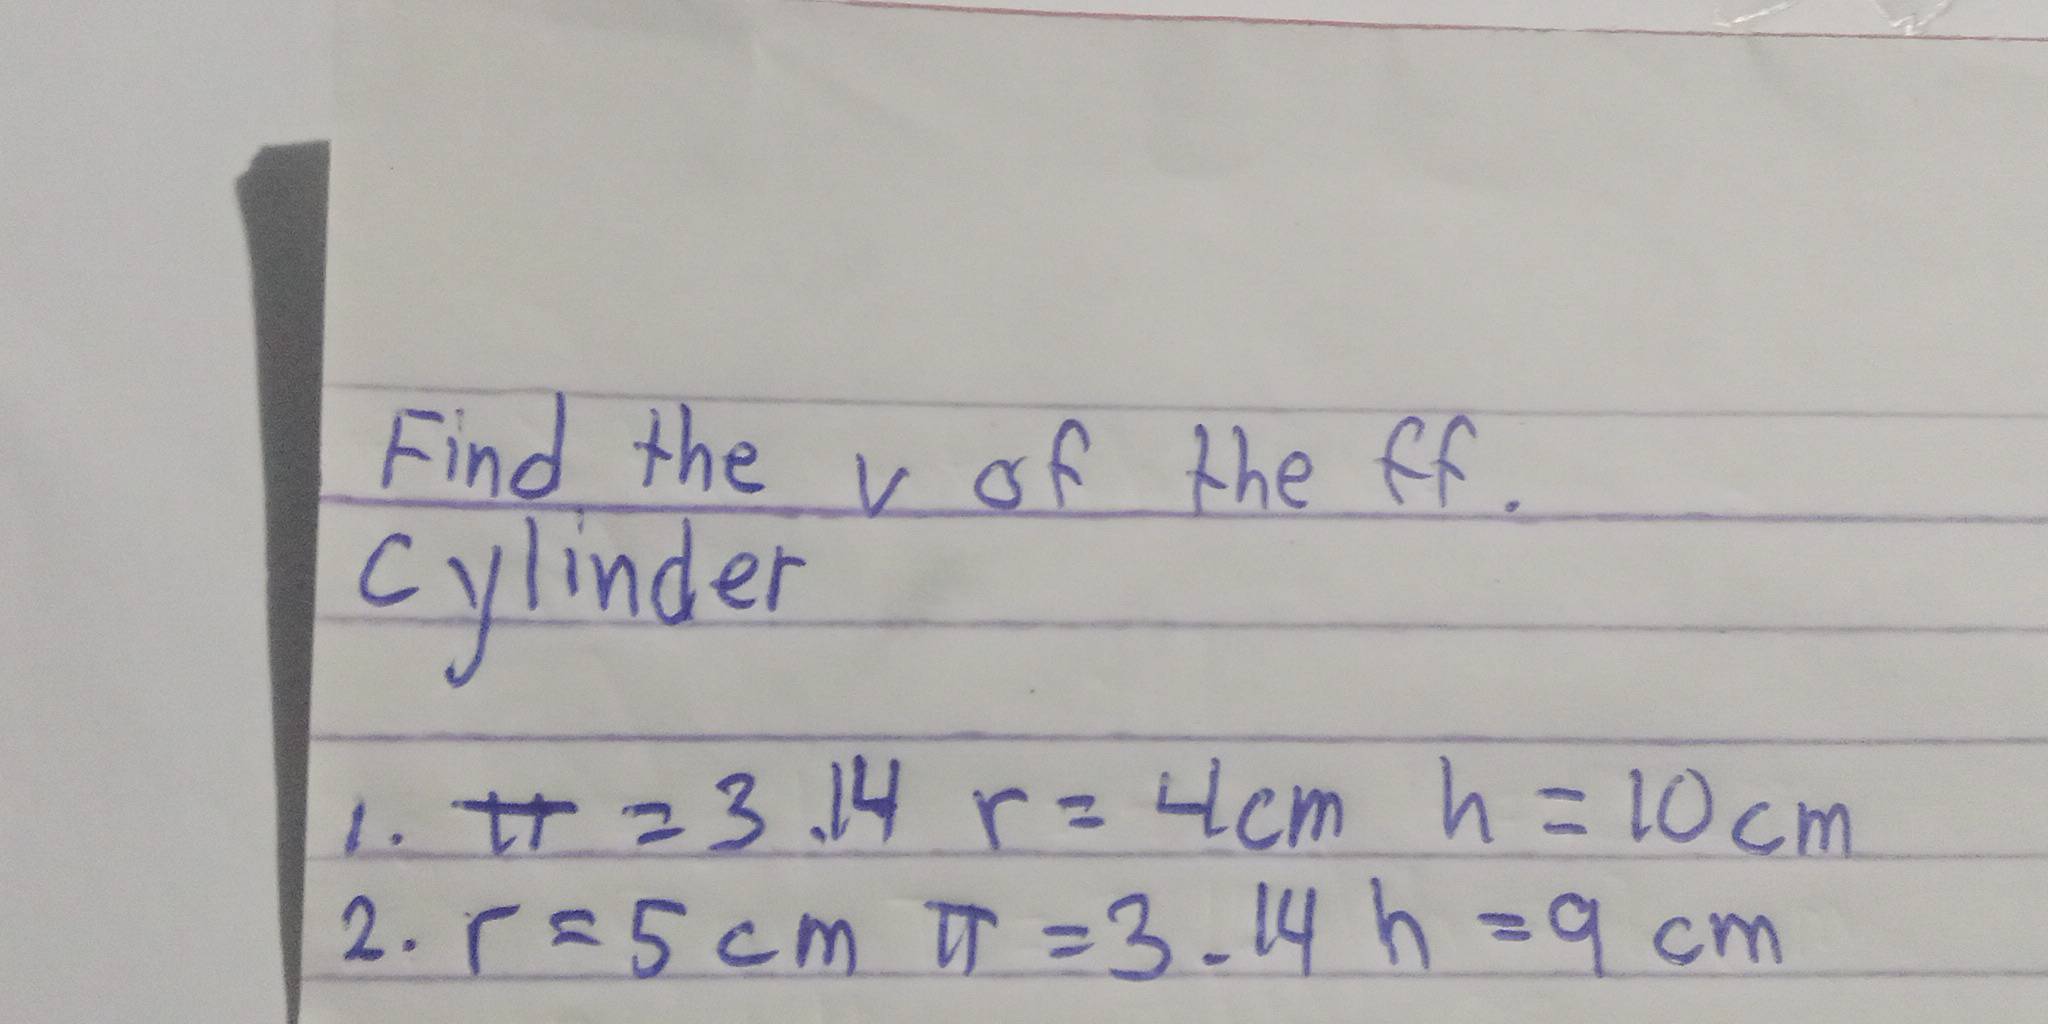 Find the v of the ff.
Cylinder
1. π = 3.14 r = 4cm h = 10cm
2. r = 5 cm π = 3.14 h = 9 cm